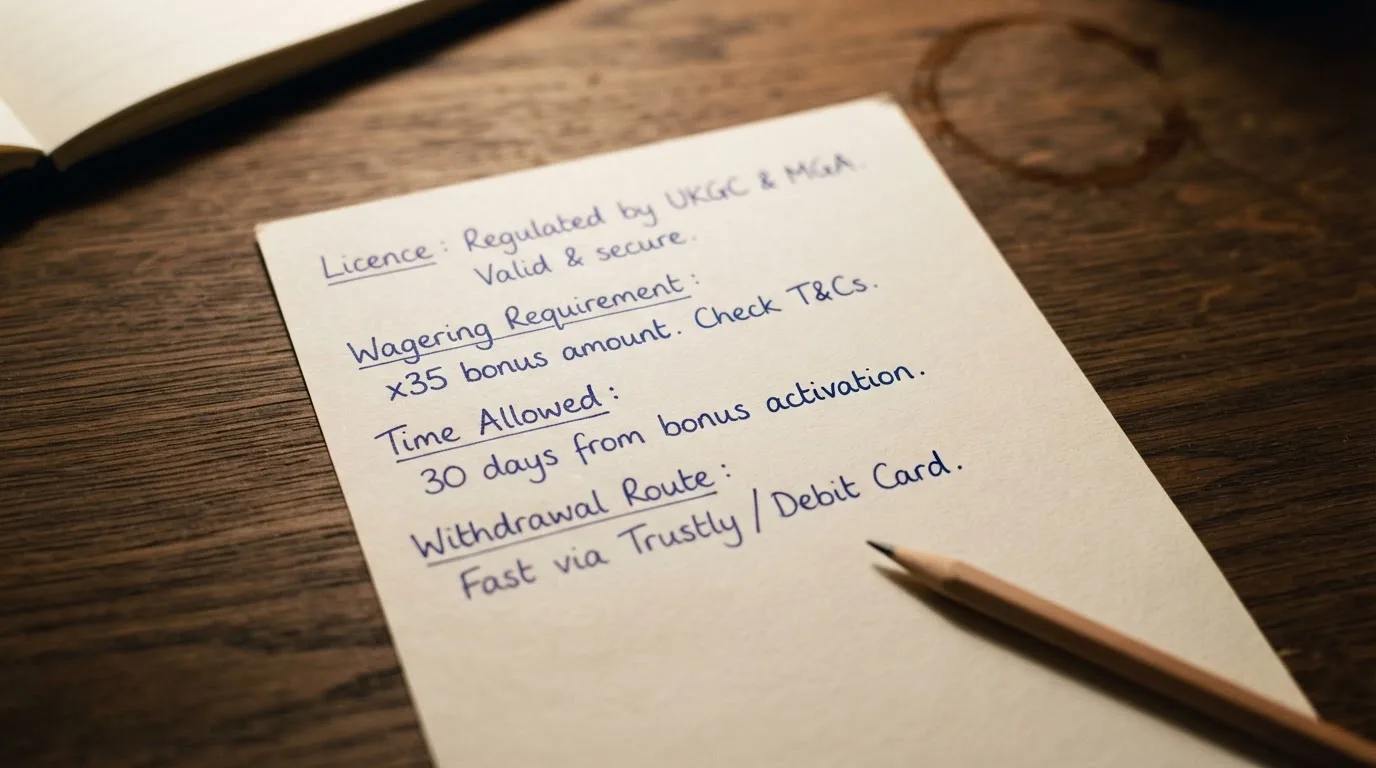 Licence: Regulated by UKGC & MGA.
Valid & secure.
Wagering Requirement:
x35 bonus amount. Check T&Cs.
Time Allowed:
30 days from bonus activation.
Withdrawal Route:
Fast via Trustly / Debit Card.